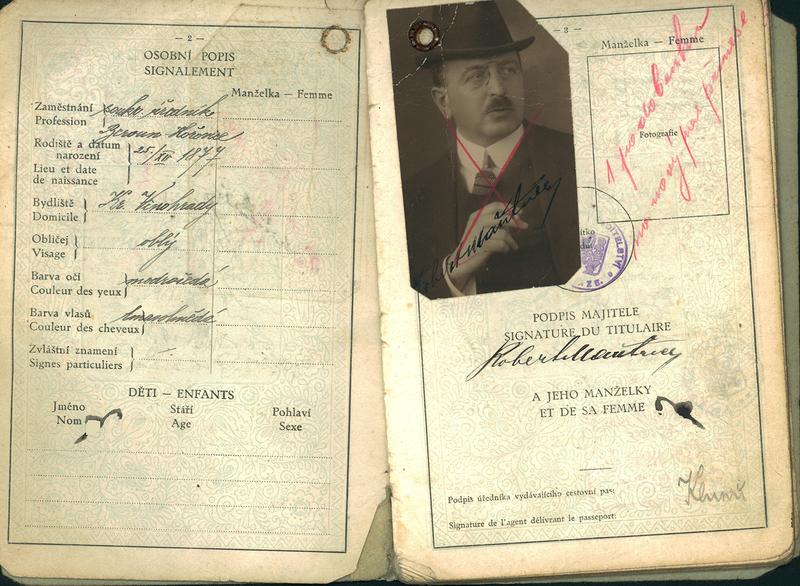 — 2 —
OSOBNÍ POPIS
SIGNALEMENT
Manželka — Femme
Zaměstnání
Profession
soukr. úředník
Beroun Hořovice
Rodiště a datum
narození
25/XII 1877
Lieu et date
de naissance
Bydliště
Domicile
Kr. Vinohrady
Obličej
Visage
oblý
Barva očí
Couleur des yeux
modrošedá
Barva vlasů
Couleur des cheveux
tmavohnědá
Zvláštní znamení
Signes particuliers
—
DĚTI — ENFANTS
Jméno
Nom
Stáří
Age
Pohlaví
Sexe
3 —
Manželka — Femme
Fotografie
1 podobenku
na nový pas přinese
PODPIS MAJITELE
SIGNATURE DU TITULAIRE
Robert Mautner
A JEHO MANŽELKY
ET DE SA FEMME
Podpis úředníka vydávajícího cestovní pas:
Signature de l'agent délivrant le passeport: